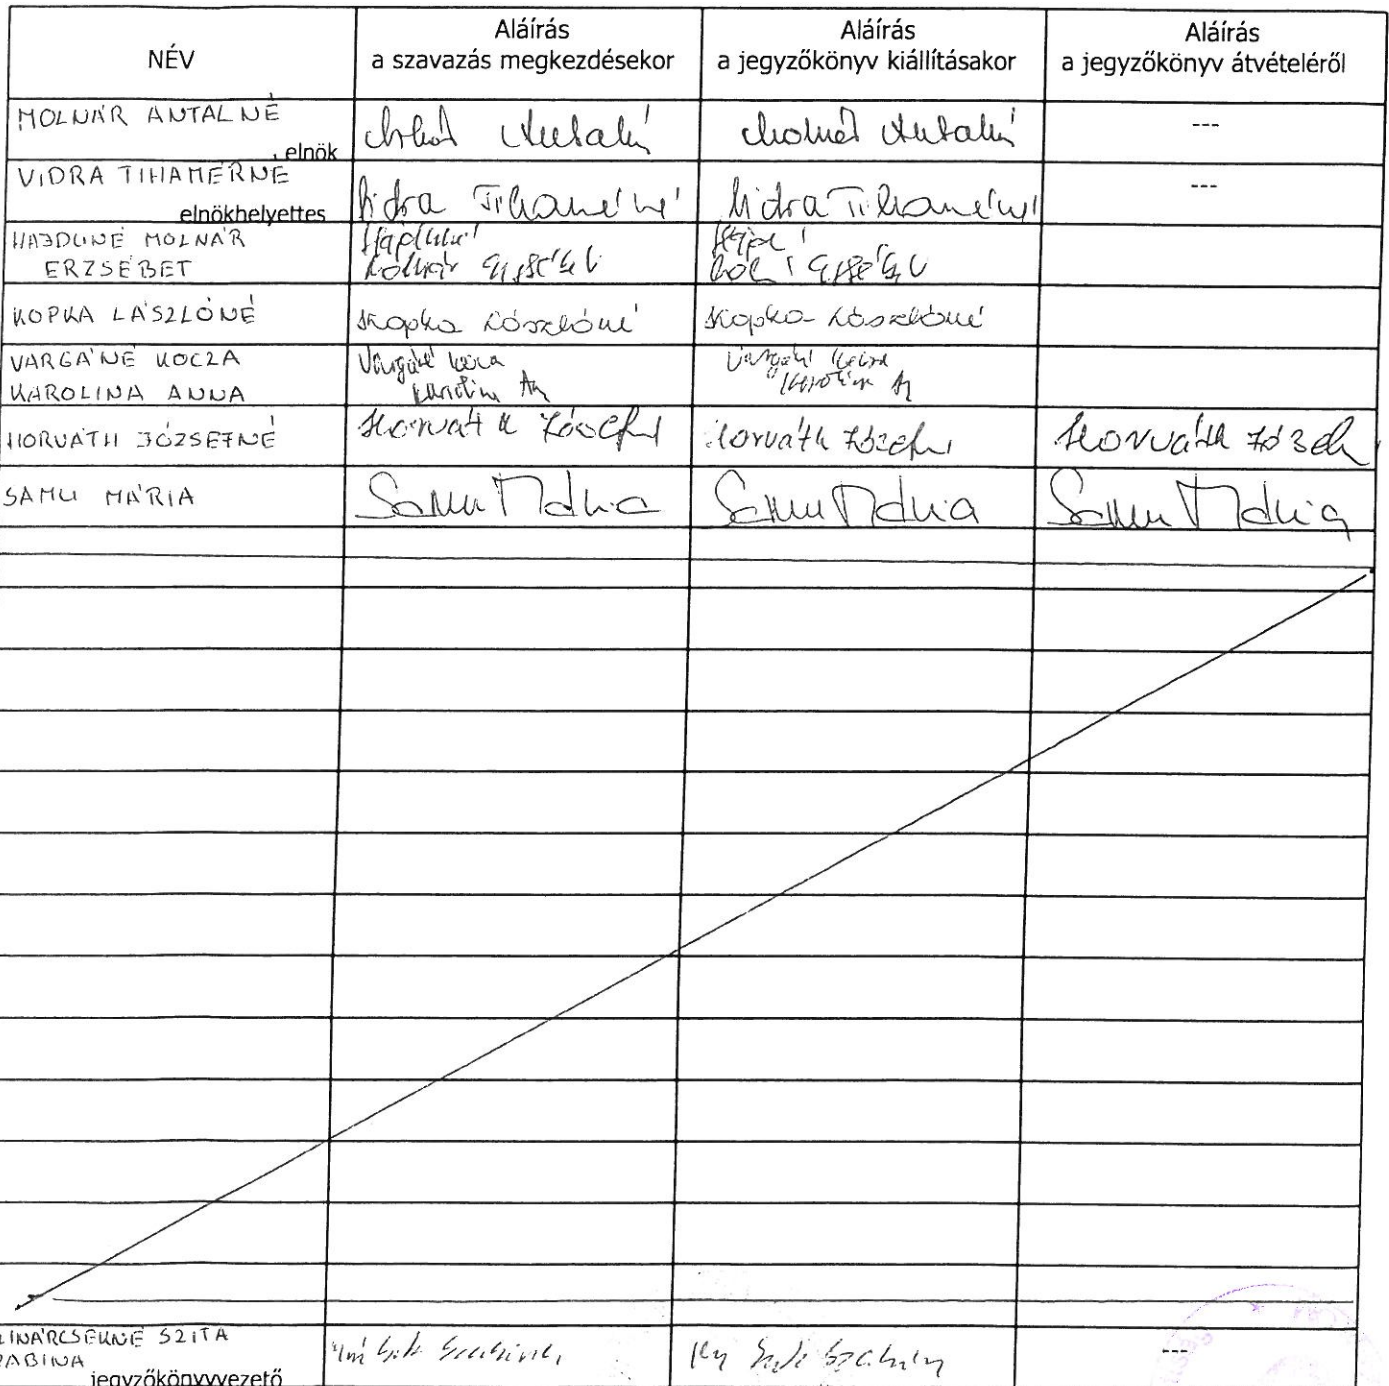 NÉV
Aláírás
a szavazás megkezdésekor
Aláírás
a jegyzőkönyv kiállításakor
Aláírás
a jegyzőkönyv átvételéről
MOLNÁR ANTALNÉ
, elnök
Molnár Antalné
Molnár Antalné
---
VIDRA TIHAMÉRNÉ
elnökhelyettes
Vidra Tihamérné
Vidra Tihamérné
---
HAJDUNÉ MOLNÁR
ERZSÉBET
Hajduné
Molnár Erzsébet
KOPKA LÁSZLÓNÉ
Kopka Lászlóné
Kopka Lászlóné
VARGÁNÉ KOCZA
KAROLINA ANNA
Vargáné Kocza
Karolina
Vargáné Kocza
Karolina
HORVÁTH JÓZSEFNÉ
Horváth Józsefné
Horváth Józsefné
Horváth József
SAMU MÁRIA
Samu Mária
Samu Mária
Samu Mária
LINÁRCSEKNÉ SZITA
SABINA
jegyzőkönyvvezető
---